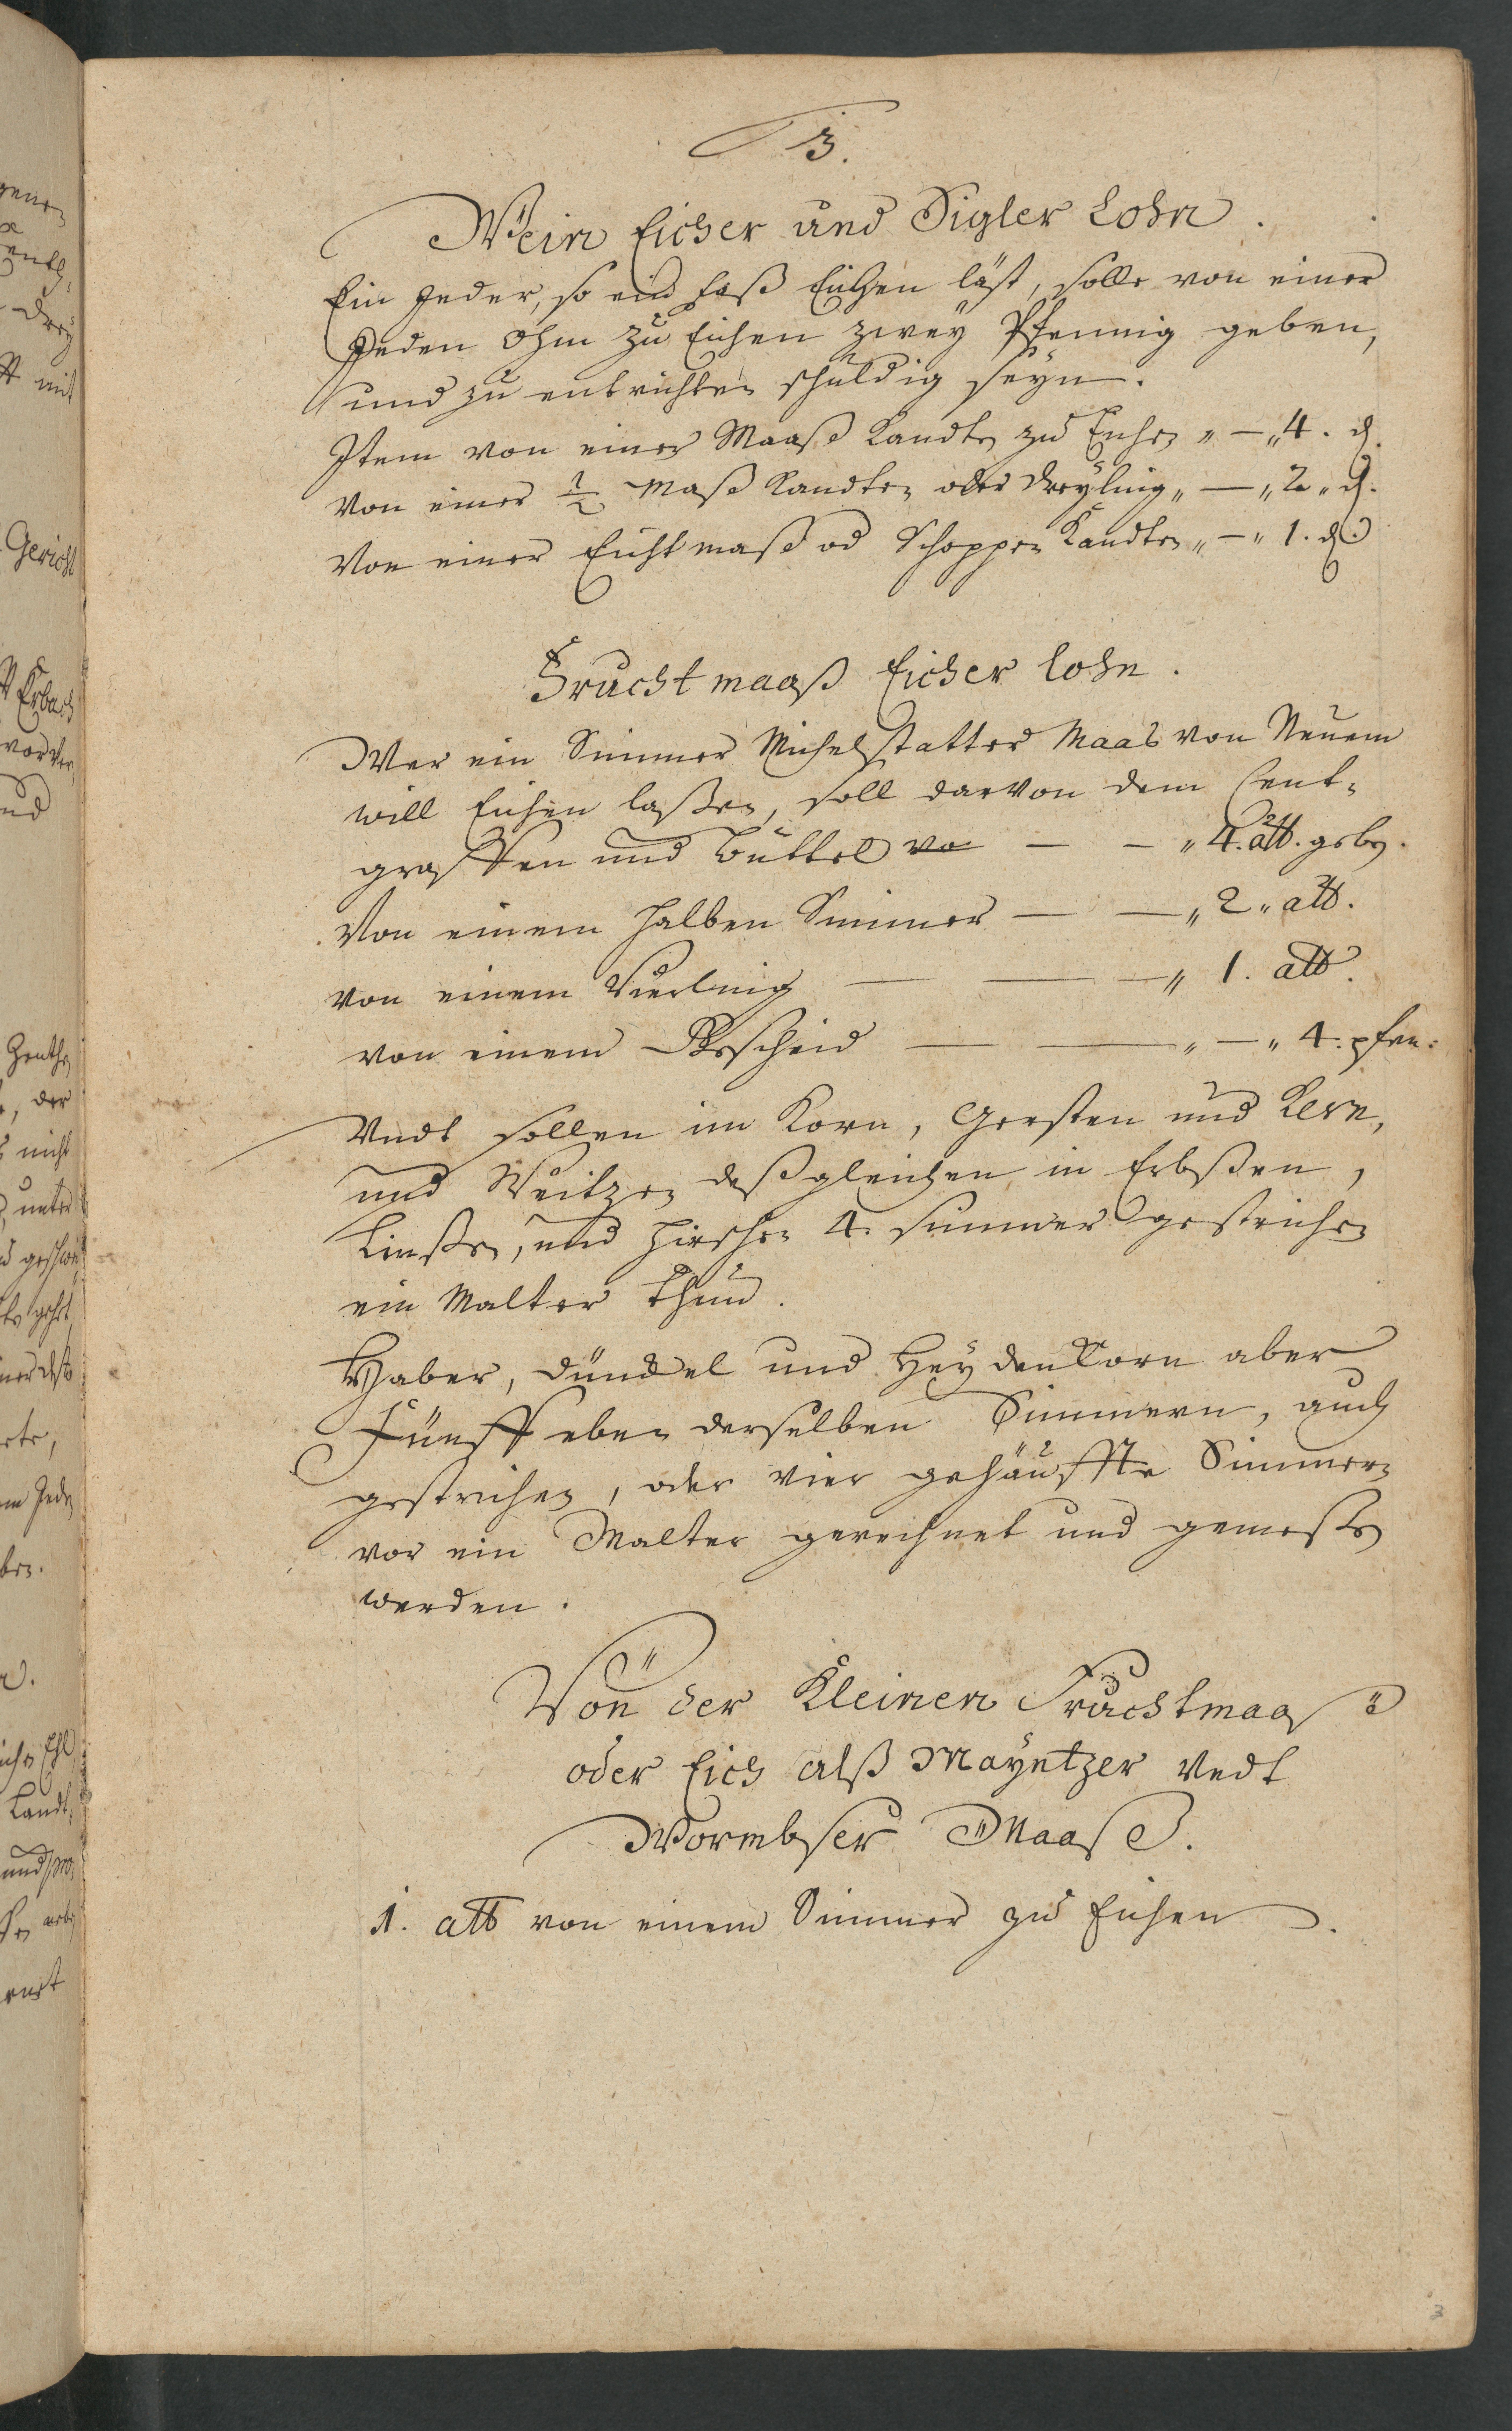 3.
Wein Eicher und Sigler Lohn.
Ein Jeder, so ein Faß Eichen läst, solle von einer
Jeden Ohm zu Eichen zwey Pfennig geben,
und zu entrichten schuldig seyn.
Item von einer Maaß Kandten zu Eichen „ — „ 4. d.
Von einer 1/2 Maß Kandten oder Dreyling „ — „ 2 „ d.
Von einer Eicht maß od Schoppen Kandten „ — „ 1. d.
Frucht maaß Eicher lohn.
Wer ein Simmer Michelstatter Maas von Neuem
will Eichen laßen, soll darvon dem Cent-
grafften und Büttel — — „ 4. alb. geben.
Von einem halben Simmer — — „ 2 „ alb.
Von einem Vierling — — — „ 1. alb.
von einem Bescheid — — „ — „ 4. pfen:
Undt sollen im Korn, Gersten und Kern,
und Weitzen deßgleichen in Erbßen,
Linßen, und Hirschen 4. simmer gestrichen
ein Malter thun.
Haber, Dünckel und Heydenkorn aber
Fünff eben derselben Simmern, auch
gestrichen, oder vier gehäuffte Simmern
vor ein Malter gerechnet und gemeßen
werden.
Von der Kleinen Fruchtmaaß
oder Eich alß Mayntzer Undt
Wormbser Maaß.
1. alb von einem Simmer zu Eichen.
3